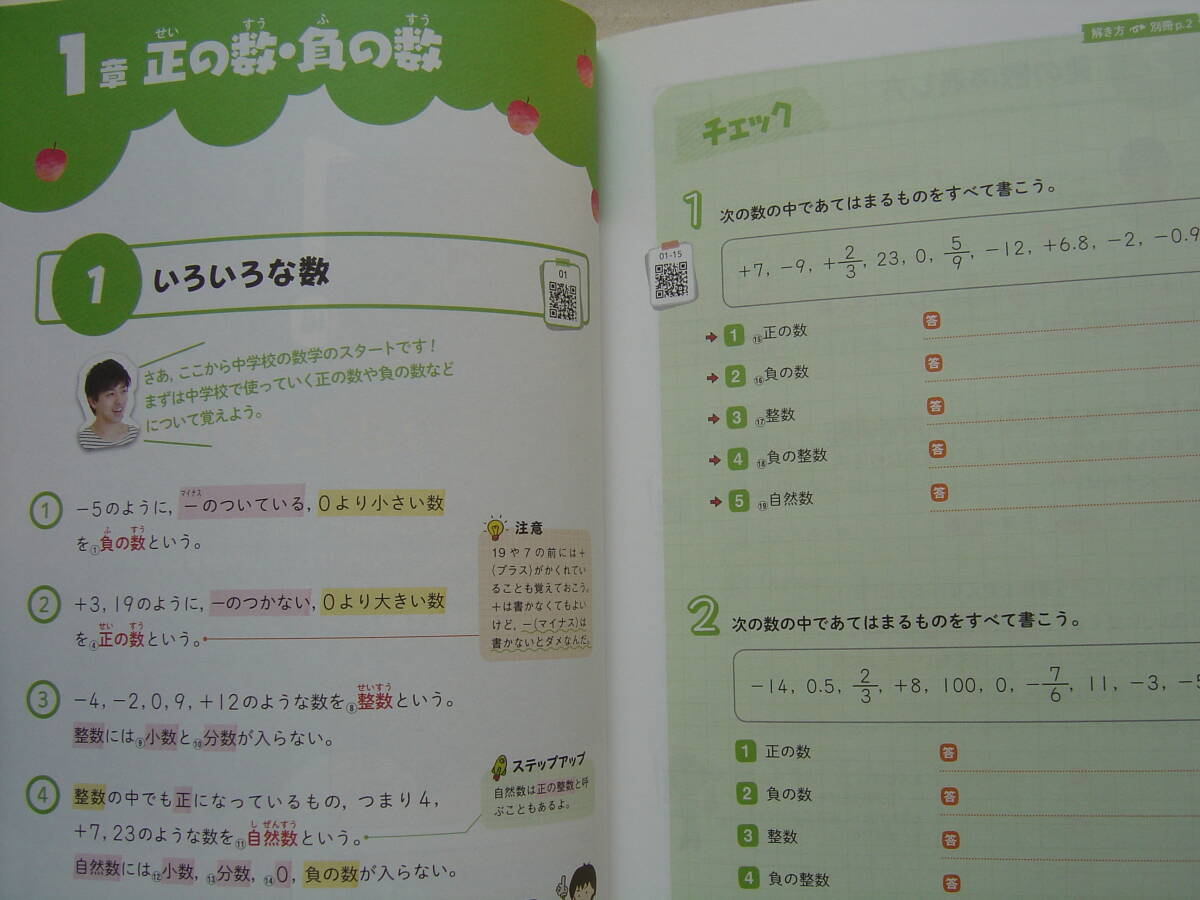 1章 正の数・負の数
せい すう ふ すう
1 いろいろな数
01
さあ，ここから中学校の数学のスタートです！
まずは中学校で使っていく正の数や負の数など
について覚えよう。
マイナス
① −5のように，−のついている，0より小さい数
ふ すう
を①負の数という。
② +3，19のように，−のつかない，0より大きい数
せい すう
を④正の数という。
注意
19や7の前には+
(プラス)がかくれてい
ることも覚えておこう。
+は書かなくてもよい
けど，−(マイナス)は
書かないとダメなんだ。
せいすう
③ −4，−2，0，9，+12のような数を⑧整数という。
整数には⑨小数と⑩分数が入らない。
④ 整数の中でも正になっているもの，つまり4，
し ぜんすう
+7，23のような数を⑪自然数という。
自然数には⑫小数，⑬分数，⑭0，負の数が入らない。
ステップアップ
自然数は正の整数と呼
ぶこともあるよ。
解き方 別冊p.2
チェック
1 次の数の中であてはまるものをすべて書こう。
01-15
+7，−9，+2/3，23，0，5/9，−12，+6.8，−2，−0.9
1 ⑮正の数 答
2 ⑯負の数 答
3 ⑰整数 答
4 ⑱負の整数 答
5 ⑲自然数 答
2 次の数の中であてはまるものをすべて書こう。
−14，0.5，2/3，+8，100，0，−7/6，11，−3，−5
1 正の数 答
2 負の数 答
3 整数 答
4 負の整数 答